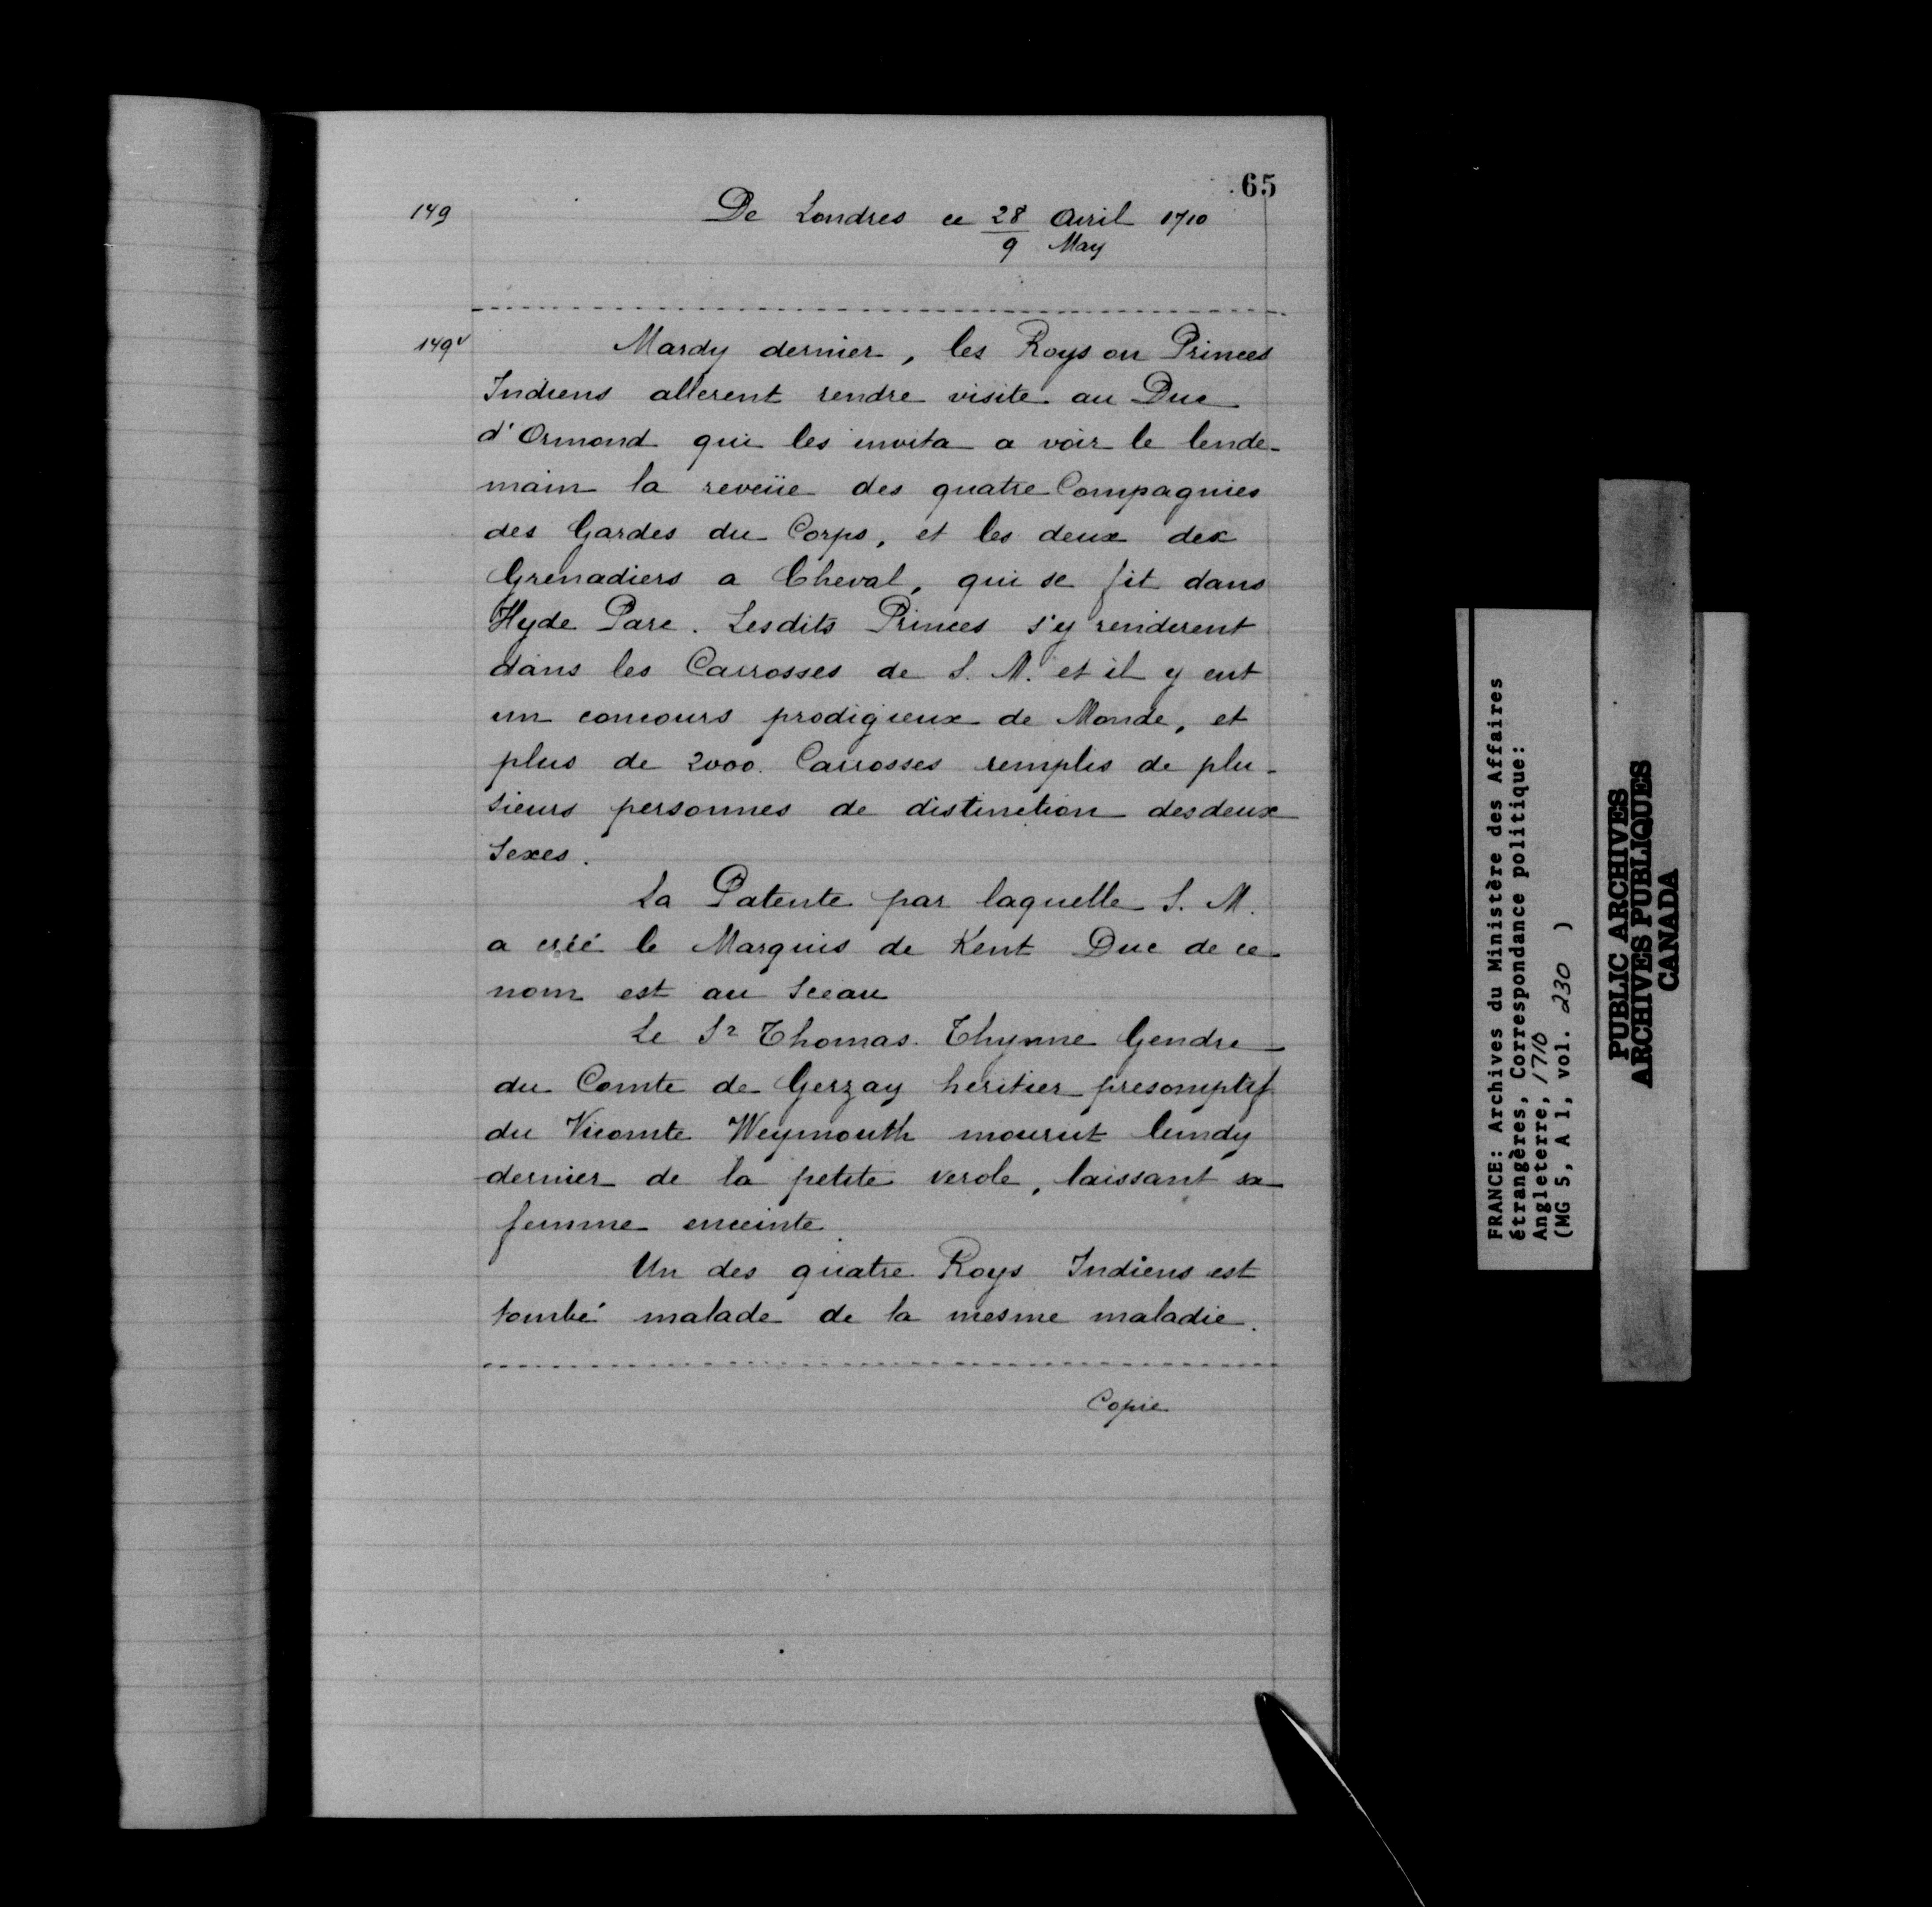 65
149 De Londres ce 28 Avril 1710
9 May
149v Mardy dernier, les Roys ou Princes
Indiens allerent rendre visite au Duc
d'Ormond qui les invita a voir le lende-
main la reveüe des quatre Compagnies
des Gardes du Corps, et les deux des
Grenadiers a Cheval, qui se fit dans
Hyde Parc. Lesdits Princes s'y renderent
dans les Carrosses de S. M. et il y eut
un concours prodigieux de Monde, et
plus de 2000. Carrosses remplis de plu-
sieurs personnes de distinction des deux
Sexes.
La Patente par laquelle S. M.
a créé le Marquis de Kent Duc de ce
nom est au Sceau
Le Sr Thomas Thynne Gendre
du Comte de Gerzay heritier presomptif
du Vicomte Weymouth mourut lundy
dernier de la petite verole, laissant sa
femme enceinte.
Un des quatre Roys Indiens est
tombé malade de la mesme maladie.
Copie
FRANCE: Archives du Ministère des Affaires
étrangères, Correspondance politique:
Angleterre, 1710
(MG 5, A 1, vol. 230 )
PUBLIC ARCHIVES
ARCHIVES PUBLIQUES
CANADA